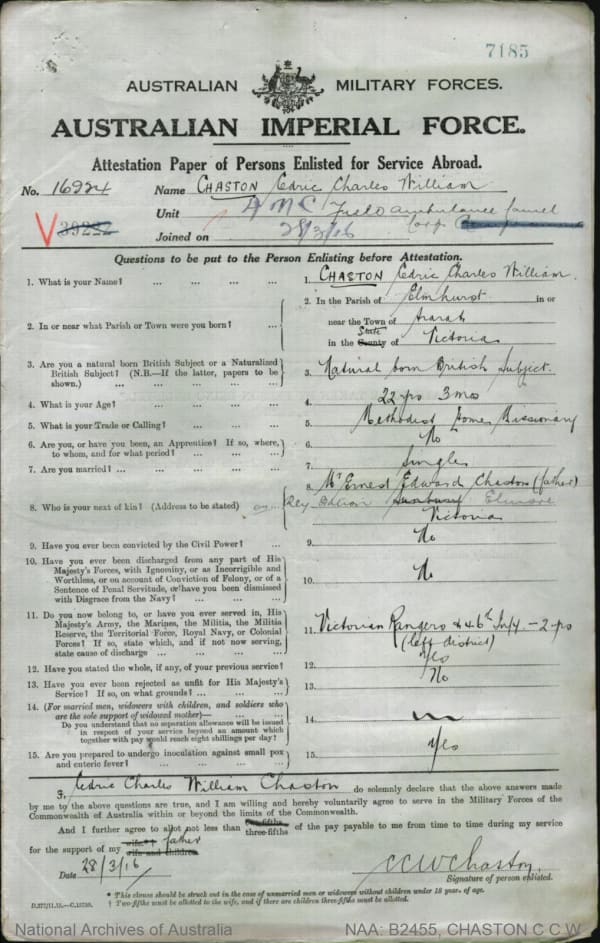 7185
AUSTRALIAN MILITARY FORCES.
AUSTRALIAN IMPERIAL FORCE.
Attestation Paper of Persons Enlisted for Service Abroad.
No. 16924 Name CHASTON Cedric Charles William
Unit AMC Field Ambulance
V 39222
Joined on 28/3/16
Questions to be put to the Person Enlisting before Attestation.
1. What is your Name? ... ... ... ... 1. CHASTON Cedric Charles William.
2. In or near what Parish or Town were you born? ... 2. In the Parish of Elmhurst in or
near the Town of Ararat
in the County State of Victoria
3. Are you a natural born British Subject or a Naturalized British Subject? (N.B.—If the latter, papers to be shown.) ... 3. Natural born British Subject.
4. What is your Age? ... 4. 22 yrs 3 mos
5. What is your Trade or Calling? ... 5. Methodist Home Missionary
6. Are you, or have you been, an Apprentice? If so, where, to whom, and for what period? ... 6. No
7. Are you married? ... 7. Single
8. Who is your next of kin? (Address to be stated) 8. Mr Ernest Edward Chaston (father)
Sunbury Elmore
Victoria
9. Have you ever been convicted by the Civil Power? 9. No
10. Have you ever been discharged from any part of His Majesty's Forces, with Ignominy, or as Incorrigible and Worthless, or on account of Conviction of Felony, or of a Sentence of Penal Servitude, or have you been dismissed with Disgrace from the Navy? ... 10. No
11. Do you now belong to, or have you ever served in, His Majesty's Army, the Marines, the Militia, the Militia Reserve, the Territorial Force, Royal Navy, or Colonial Forces? If so, state which, and if not now serving, state cause of discharge ... 11. Victorian Rangers & 46th Inf. – 2 yrs
(left district)
12. Have you stated the whole, if any, of your previous service? 12. Yes
13. Have you ever been rejected as unfit for His Majesty's Service? If so, on what grounds? ... 13. No
14. (For married men, widowers with children, and soldiers who are the sole support of widowed mother)—
Do you understand that no separation allowance will be issued in respect of your service beyond an amount which together with pay would reach eight shillings per day? 14.
15. Are you prepared to undergo inoculation against small pox and enteric fever? ... 15. Yes
I, Cedric Charles William Chaston do solemnly declare that the above answers made
by me to the above questions are true, and I am willing and hereby voluntarily agree to serve in the Military Forces of the
Commonwealth of Australia within or beyond the limits of the Commonwealth.
And I further agree to allot not less than two-fifths three-fifths of the pay payable to me from time to time during my service
for the support of my wife* † wife and children father
Date 28/3/16
CCW Chaston.
Signature of person enlisted.
* This clause should be struck out in the case of unmarried men or widowers without children under 18 year. of age.
† Two-fifths must be allotted to the wife, and if there are children three-fifths must be allotted.
National Archives of Australia NAA: B2455, CHASTON C C W